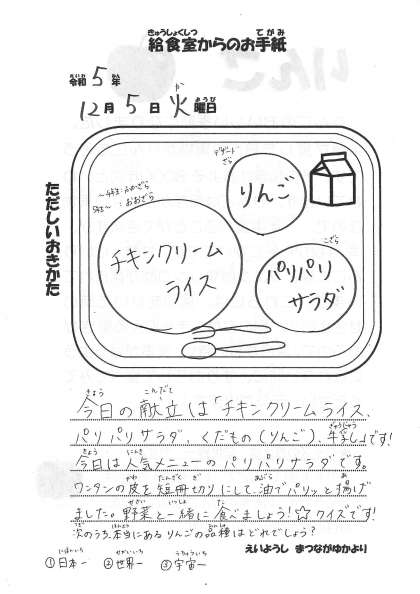 給食室からのお手紙
令和5年
12月5日火曜日
ただしいおきかた
デザートざら
りんご
〜4年生:小おかずざら
5年生〜:おおざら
チキンクリーム
ライス
こざら
パリパリ
サラダ
今日の献立は「チキンクリームライス、
パリパリサラダ、くだもの(りんご)、牛乳」です!
今日は人気メニューのパリパリサラダです。
ワンタンの皮を短冊切りにして、油でパリッと揚げ
ました。野菜と一緒に食べましょう!☆クイズです!
次のうち、本当にあるりんごの品種はどれでしょう?
えいようし まつながゆかより
①日本一 ②世界一 ③宇宙一